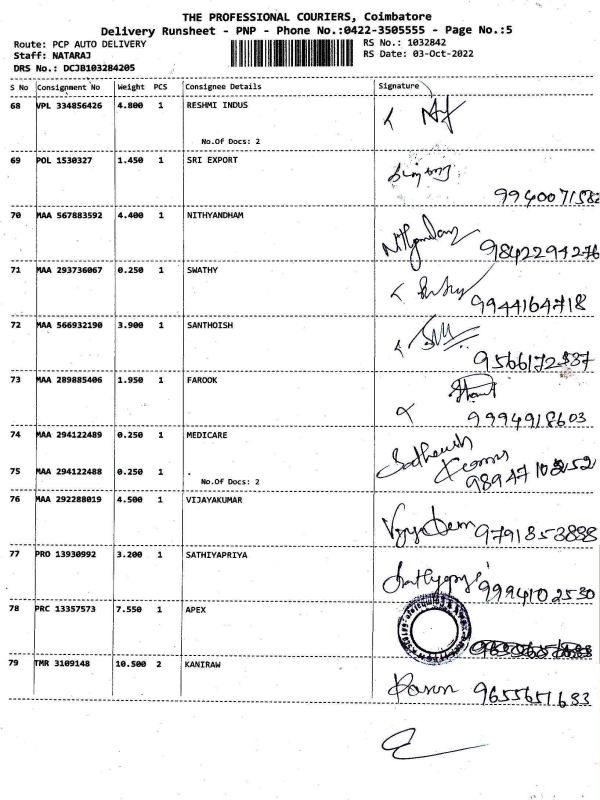 THE PROFESSIONAL COURIERS, Coimbatore
Delivery Runsheet - PNP - Phone No.:0422-3505555 - Page No.:5
Route: PCP AUTO DELIVERY RS No.: 1032842
Staff: NATARAJ RS Date: 03-Oct-2022
DRS No.: DCJB103284205
S No Consignment No Weight PCS Consignee Details Signature
68 VPL 334856426 4.800 1 RESHMI INDUS
No.Of Docs: 2
69 POL 1530327 1.450 1 SRI EXPORT
9940071582
70 MAA 567883592 4.400 1 NITHYANDHAM
9842294276
71 MAA 293736067 0.250 1 SWATHY
9944164718
72 MAA 566932190 3.900 1 SANTHOISH
73 MAA 289885406 1.950 1 FAROOK
9994918603
74 MAA 294122489 0.250 1 MEDICARE
75 MAA 294122488 0.250 1 .
No.Of Docs: 2
76 MAA 292288019 4.500 1 VIJAYAKUMAR
9791853888
77 PRO 13930992 3.200 1 SATHIYAPRIYA
9994102530
78 PRC 13357573 7.550 1 APEX
79 TMR 3109148 10.500 2 KANIRAW
9655651683